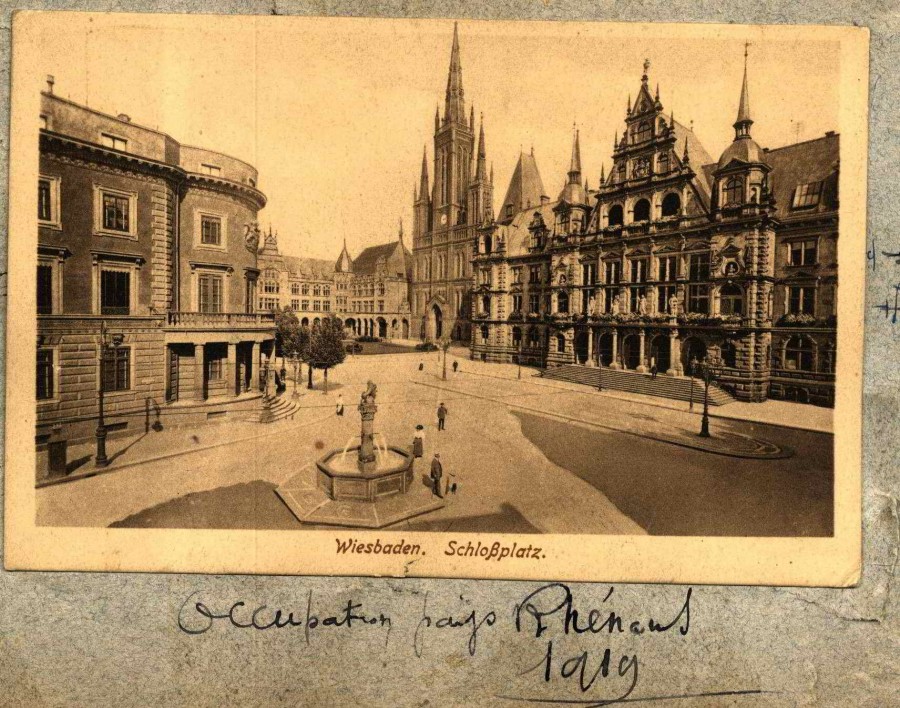 Wiesbaden. Schloßplatz.
Occupation pays Rhénans
1919